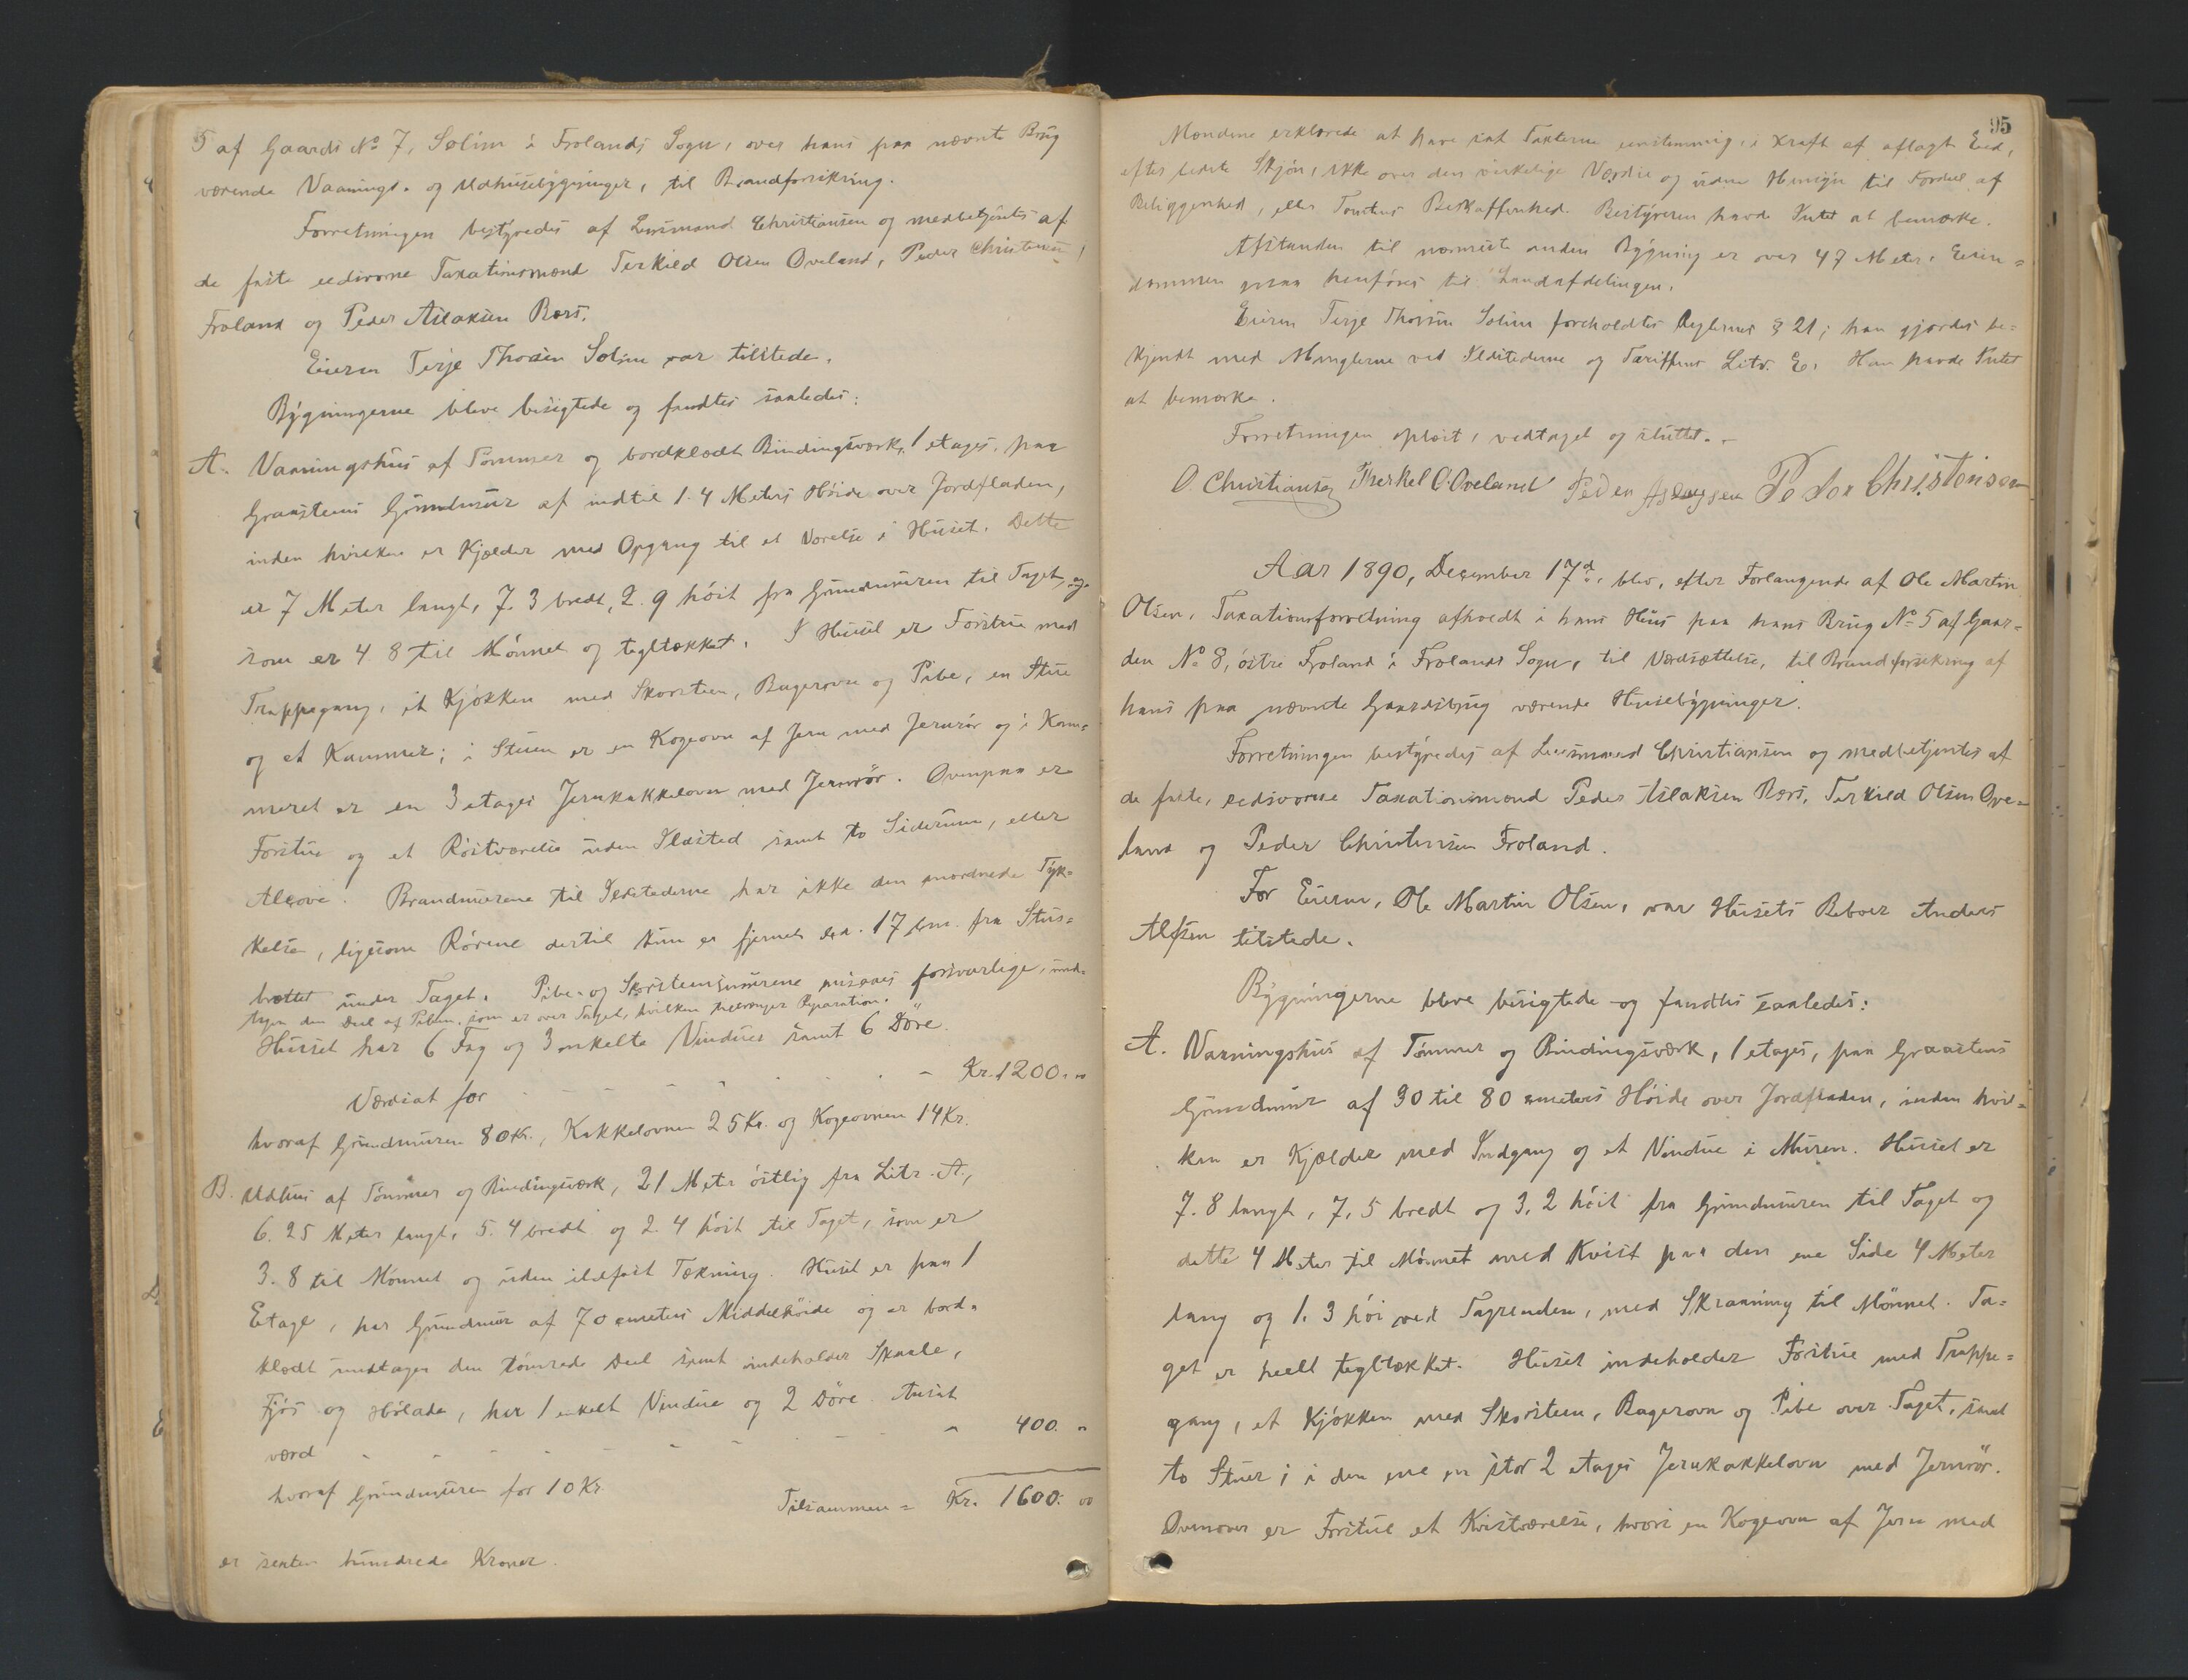 5 af Gaards No 7, Solim i Frolands Sogn, over hans paa nævnte Brug
værende Vaanings- og Udhusebygninger, til Brandforsikring.
Forretningen bestyredes af Lensmand Christiansen og medbetjentes af
de faste eedsvorne Taxationsmænd Terkild Olsen Oveland, Peder Christensen
Froland og Peder Aslaksen Ræss.
Eieren Terje Thorsen Solim var tilstede.
Bygningerne bleve besigtede og fandtes saaledes:
A. Vaaningshus af Tømmer og bordklædt Bindingsværk, 1 etages, paa
Graastens Grundmur af indtil 1.4 Meters Høide over Jordfladen,
inden hvilken er Kjælder med Opgang til et Værelse i Huset. Dette
er 7 Meter langt, 7.3 bredt, 2.9 høit fra Grundmuren til Taget, og
som er 4.8 til Mønnet og tegltækket. I Huset er Forstue med
Trappegang, et Kjøkken med Skorsten, Bagerovn og Pibe, en Stue
og et Kammer; i Stuen er en Kogeovn af Jern med Jernrør og i Kam=
meret er en 3 etages Jernkakkelovn med Jernrør. Ovenpaa er
Forstue og et Røstværelse uden Ildsted samt to Siderum, eller
Alcove. Brandmurene til Ildstederne har ikke den anordnede Tyk=
kelse, ligesom Rørene dertil kun er fjernet 17 cm. fra Stus=
brættet under Taget. Pibe- og Skorstensmurene ansaaes forsvarlige, und=
tagen den Deel af Piben, som er over Taget, hvilken tiltrænger Reparation.
Huset har 6 Fag og 3 enkelte Vinduer samt 6 Døre.
Værdsat for - - - - Kr. 1200. "
hvoraf Grundmuren 80 Kr., Kakkelovnen 25 Kr. og Kogeovnen 14 Kr.
B. Udhus af Tømmer og Bindingsværk, 21 Meter østlig fra Litr. A.,
6.25 Meter langt, 5.4 bredt og 2.4 høit til Taget, som er
3.8 til Mønnet og uden ildfast Tækning. Huset er paa 1
Etage, har Grundmur af 70 cmeters Middelhøide og er bord=
klædt undtagen den tømrede Deel samt indeholder Skaale,
Fjøs og Høladе, har 1 enkelt Vindue og 2 Døre. Ansat
værd - - - - - 400. "
hvoraf Grundmuren for 10 Kr.
Tilsammen = Kr. 1600. 00
er sexten hundrede Kroner.
95
Mændene erklærede at have sat Taxterne eenstemmig, i Kraft af aflagt Eed,
efter bedste Skjøn, ikke over den virkelige Værdie og uden Hensyn til Fordeel af
Beliggenhed, eller Tomtens Beskaffenhed. Bestyreren havde Intet at bemærke.
Afstanden til nærmeste anden Bygning er over 47 Meter. Eien=
dommen maa henføres til Landafdelingen.
Eieren Terje Thorsen Solim foreholdtes Reglernes § 21; han gjordes be=
kjendt med Manglerne ved Ildstederne og Tariffens Litr. E. Han havde Intet
at bemærke.
Forretningen oplæst, vedtaget og sluttet. -
O. Christiansen Therkel O. Oveland Peder Aslagsen Peder Christensen
Aar 1890, December 17d., blev, efter Forlangende af Ole Martin
Olsen, Taxationsforretning afholdt i hans Hus paa hans Brug No 5 af Gaar=
den No 8, østre Froland i Frolands Sogn, til Værdsættelse, til Brandforsikring af
hans paa nævnte Gaardsbrug værende Husebygninger.
Forretningen bestyredes af Lensmand Christiansen og medbetjentes af
de faste, eedsvorne Taxationsmænd Peder Aslaksen Ræss, Terkild Olsen Ove=
land og Peder Christensen Froland.
For Eieren, Ole Martin Olsen, var Husets Beboer Anders
Alfsen tilstede.
Bygningerne bleve besigtede og fandtes saaledes:
A. Vaaningshus af Tømmer og Bindingsværk, 1 etages, paa Graastens
Grundmur af 30 til 80 cmeters Høide over Jordfladen, inden hvil=
ken er Kjælder med Indgang og et Vindue i Muren. Huset er
7.8 langt, 7,5 bredt og 3,2 høit fra Grundmuren til Taget og
dette 4 Meter til Mønnet med Kvist paa den ene Side 4 Meter
lang og 1.3 høi ved Tagrenden, med Skraaning til Mønnet. Ta=
get er heelt tegltækket. Huset indeholder Forstue med Trappe=
gang, et Kjøkken med Skorsten, Bagerovn og Pibe over Taget, samt
to Stuer; i den ene en stor 2 etages Jernkakkelovn med Jernrør.
Ovenover er Forstue et Kvistværelse, hvori en Kogeovn af Jern med